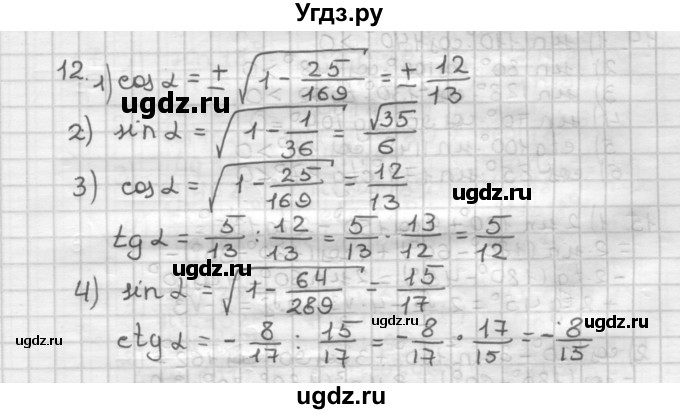 Угдз.ру
12. 1) cos α = ± √(1 - 25/169) = ± 12/13
ugdz.ru
2) sin α = √(1 - 1/36) = √35/6
ugdz.ru
ugdz.ru
3) cos α = √(1 - 25/169) = 12/13
tg α = 5/13 : 12/13 = 5/13 · 13/12 = 5/12
ugdz.ru
4) sin α = √(1 - 64/289) = 15/17
ugdz.ru
ugdz.ru
ctg α = - 8/17 : 15/17 = - 8/17 · 17/15 = - 8/15
ugdz.ru
ugdz.ru